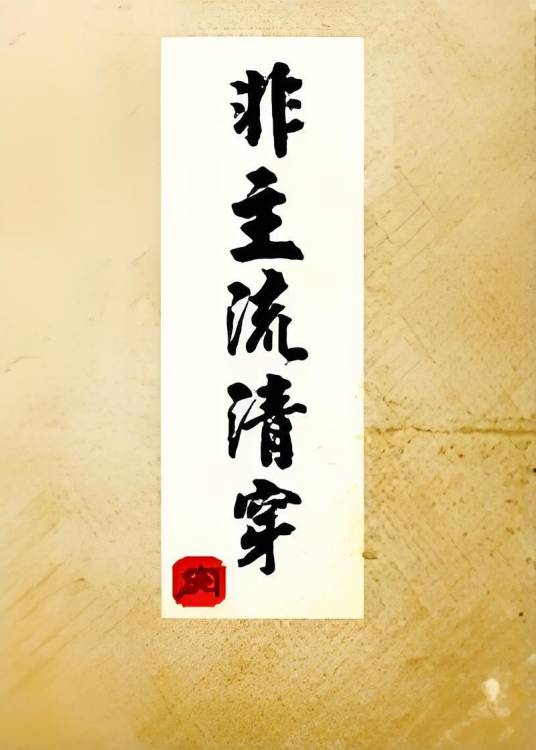 非主流清穿